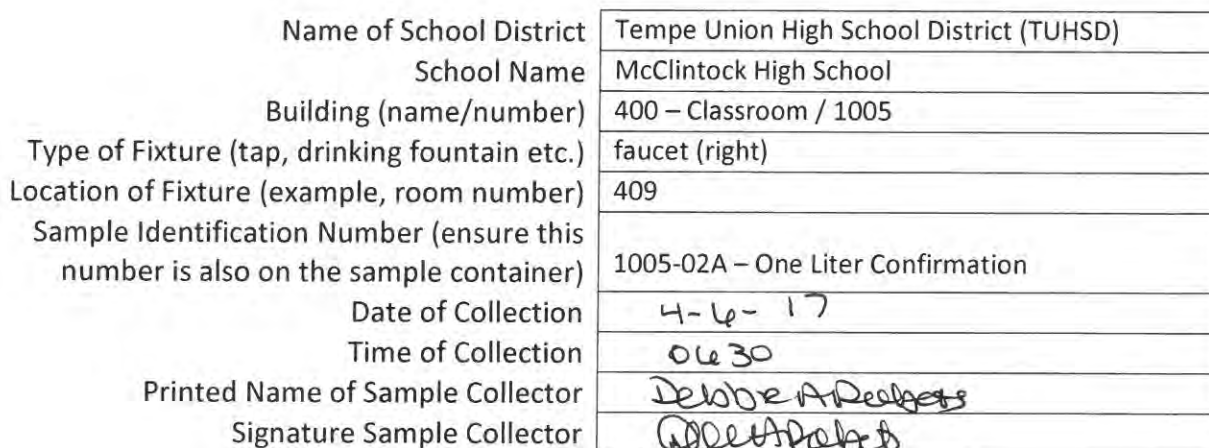 Name of School District Tempe Union High School District (TUHSD)
School Name McClintock High School
Building (name/number) 400 – Classroom / 1005
Type of Fixture (tap, drinking fountain etc.) faucet (right)
Location of Fixture (example, room number) 409
Sample Identification Number (ensure this
number is also on the sample container) 1005-02A – One Liter Confirmation
Date of Collection 4-6-17
Time of Collection 0630
Printed Name of Sample Collector Debbie A
Signature Sample Collector